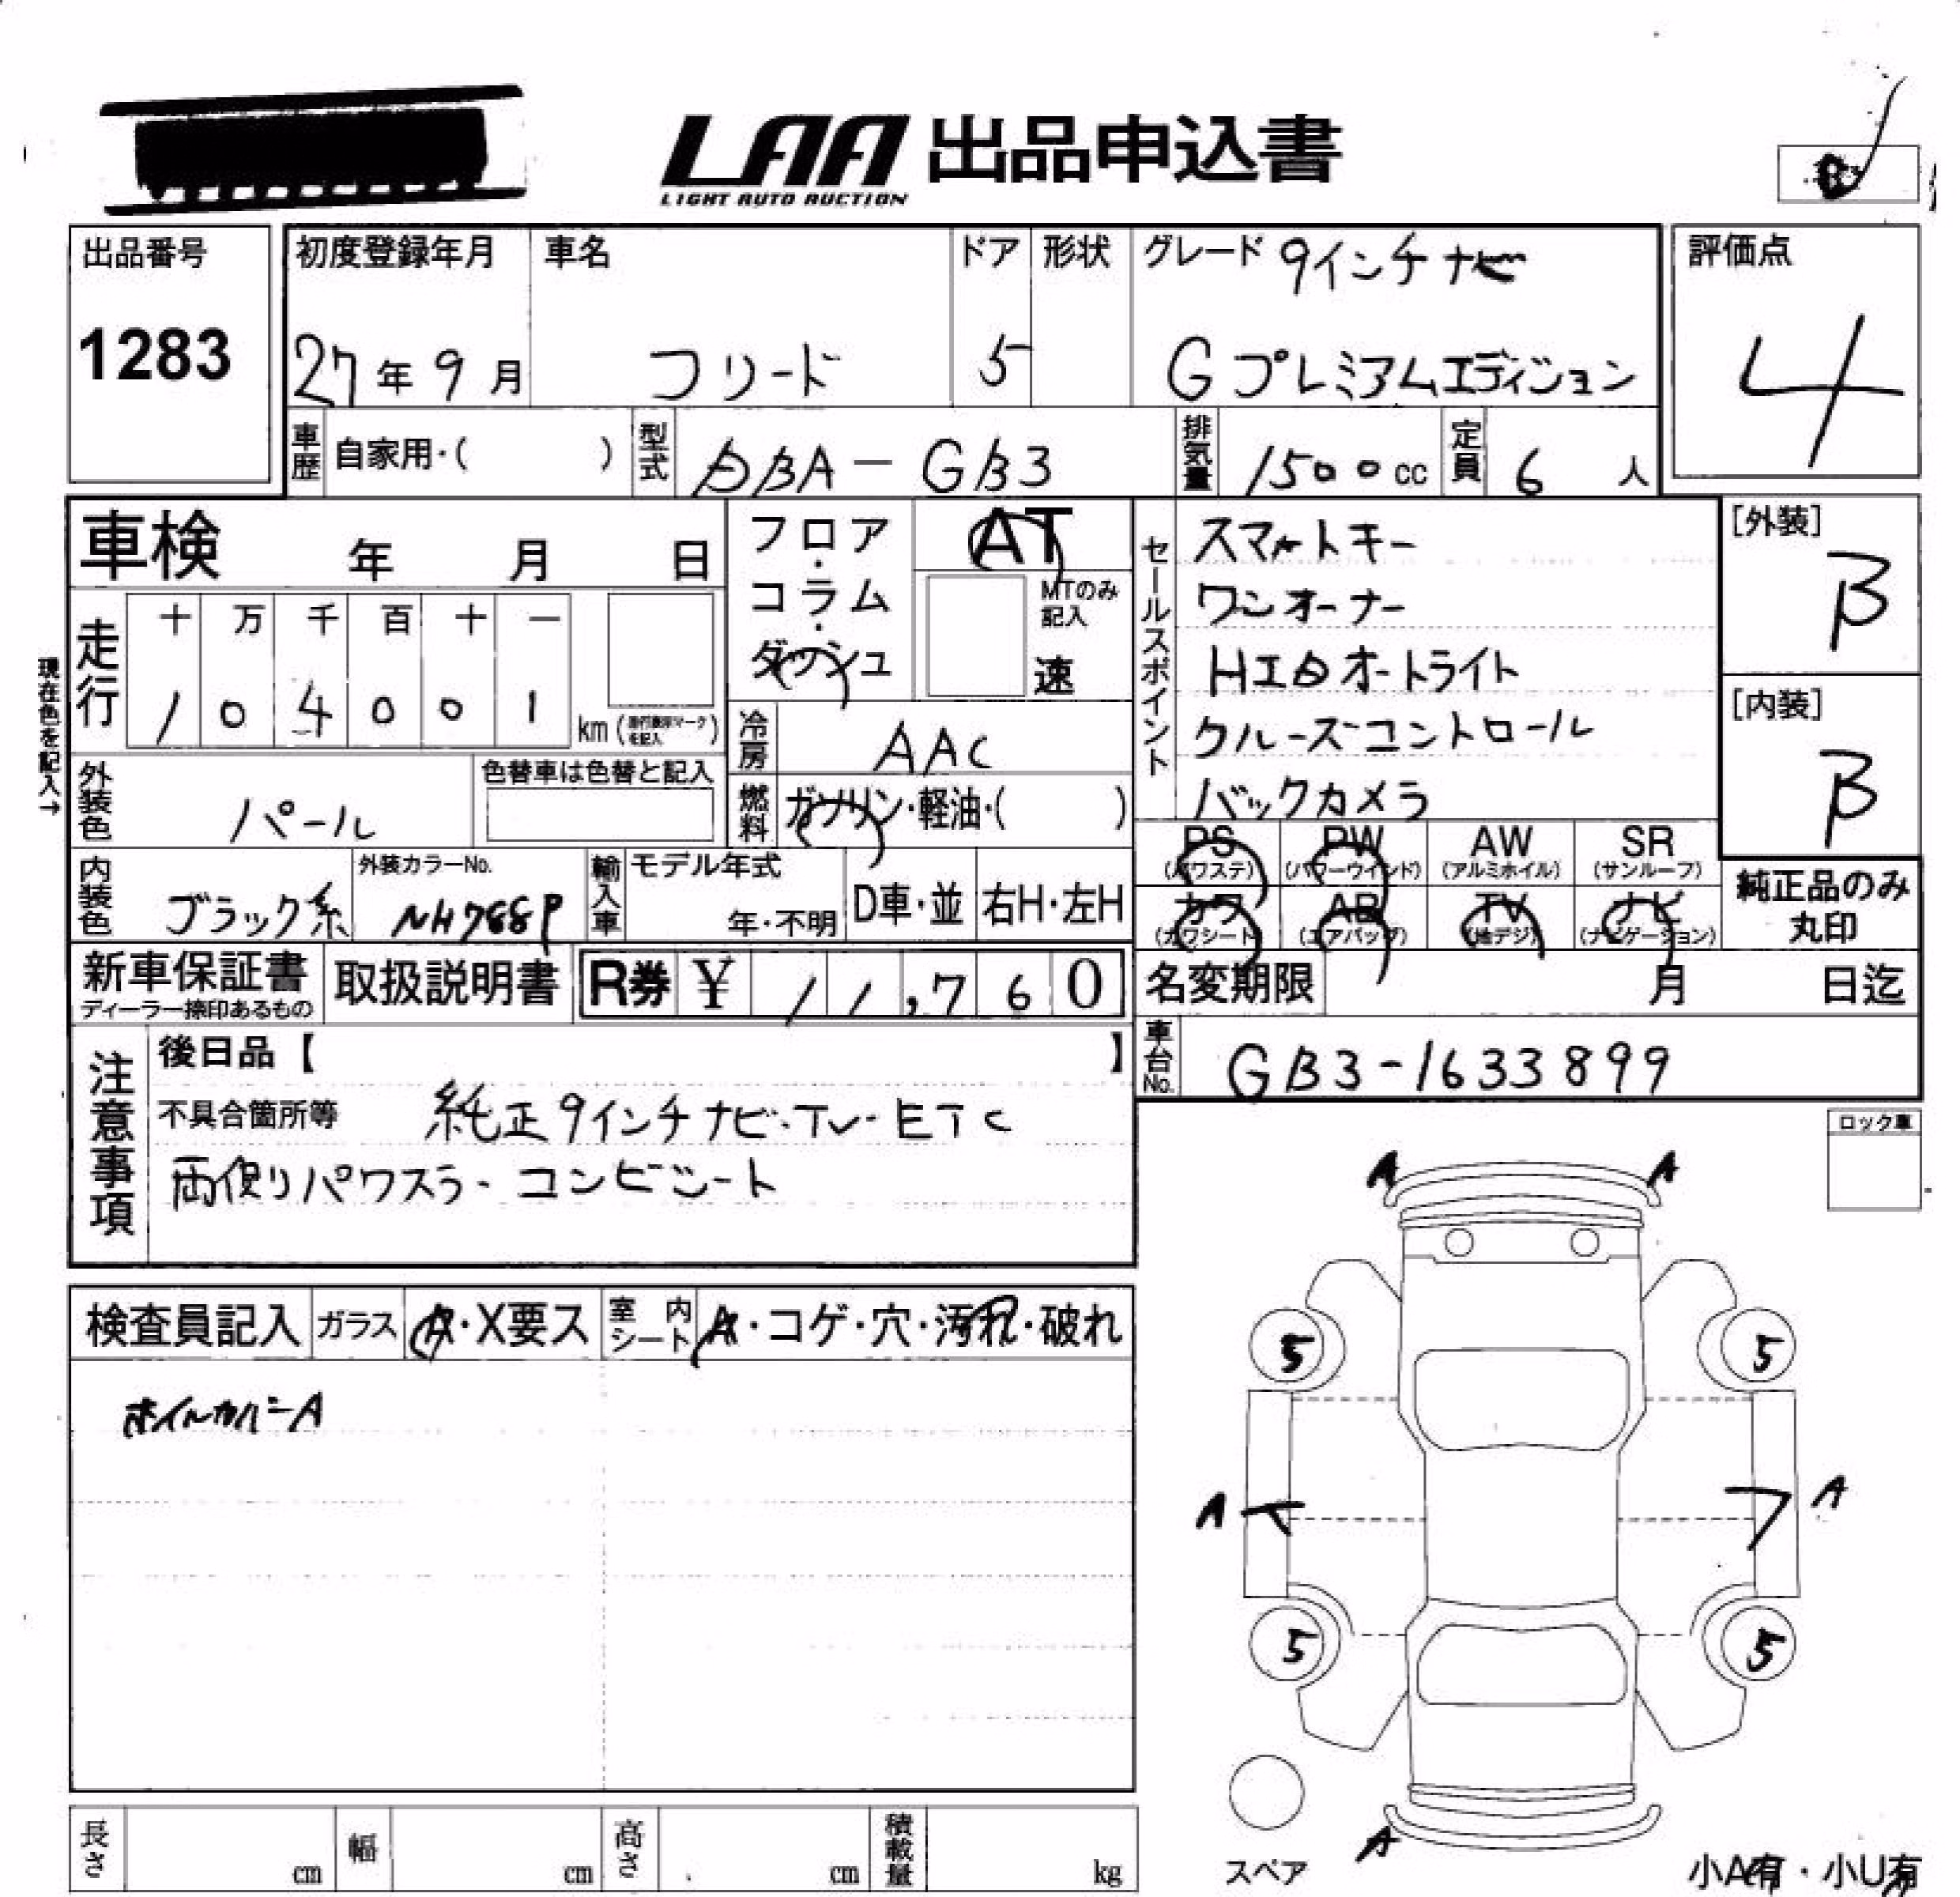 LAA 出品申込書
LIGHT AUTO AUCTION
出品番号
1283
初度登録年月
27年9月
車名
フリード
ドア
5
形状
グレード 9インチナビ
Gプレミアムエディション
評価点
4
車歴 自家用・( )
型式 DBA-GB3
排気量 1500cc
定員 6人
車検 年 月 日
フロア・コラム・ダッシュ
AT
MTのみ記入
速
セールスポイント
スマートキー
ワンオーナー
HIDオートライト
クルーズコントロール
バックカメラ
[外装]
B
[内装]
B
現在色を記入→
走行
十 万 千 百 十 一
1 0 4 0 0 1 km
冷房 AAC
外装色 パール
色替車は色替と記入
燃料 ガソリン・軽油・( )
PS (パワステ)
PW (パワーウィンド)
AW (アルミホイル)
SR (サンルーフ)
カワ (カワシート)
AB (エアバッグ)
TV (地デジ)
ナビ (ナビゲーション)
純正品のみ
丸印
内装色 ブラック系
外装カラーNo.
NH788P
輸入車
モデル年式
年・不明
D車・並
右H・左H
新車保証書
ディーラー捺印あるもの
取扱説明書
R券 ¥11,760
名変期限 月 日迄
車台No. GB3-1633899
注意事項
後日品【 】
不具合箇所等 純正9インチナビ・TV・ETC
両側パワスラ・コンビシート
ロック車
A A
検査員記入
ガラス A・X要ス
室内シート A・コゲ・穴・汚れ・破れ
ホイルカバーA
5 5
A A
5 5
A
スペア
小A有・小U有
長さ cm
幅 cm
高さ cm
積載量 kg